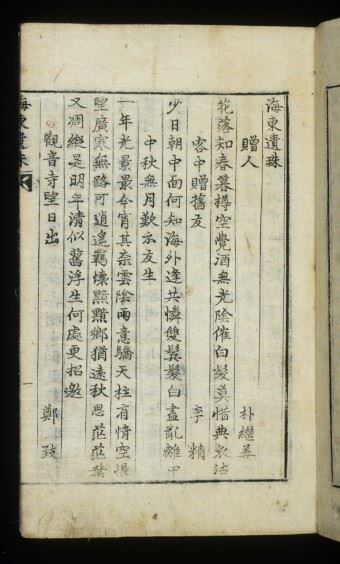 海東遺珠
贈人
朴繼姜
花落知春暮樽空覺酒無光陰催白髮莫惜典衣沽
客中贈舊友
李精
少日朝中面何知海外逢共憐雙鬢髮白盡亂離中
中秋無月歎示友生
一年光景最今宵其奈雲陰雨意驕天柱有情空悵
望廣寒無路可逍遙羈懷黯黯鄉猶遠秋思茫茫葉
又凋縱是明年清似舊浮生何處更招邀
觀音寺望日出
鄭致
海東遺珠
一